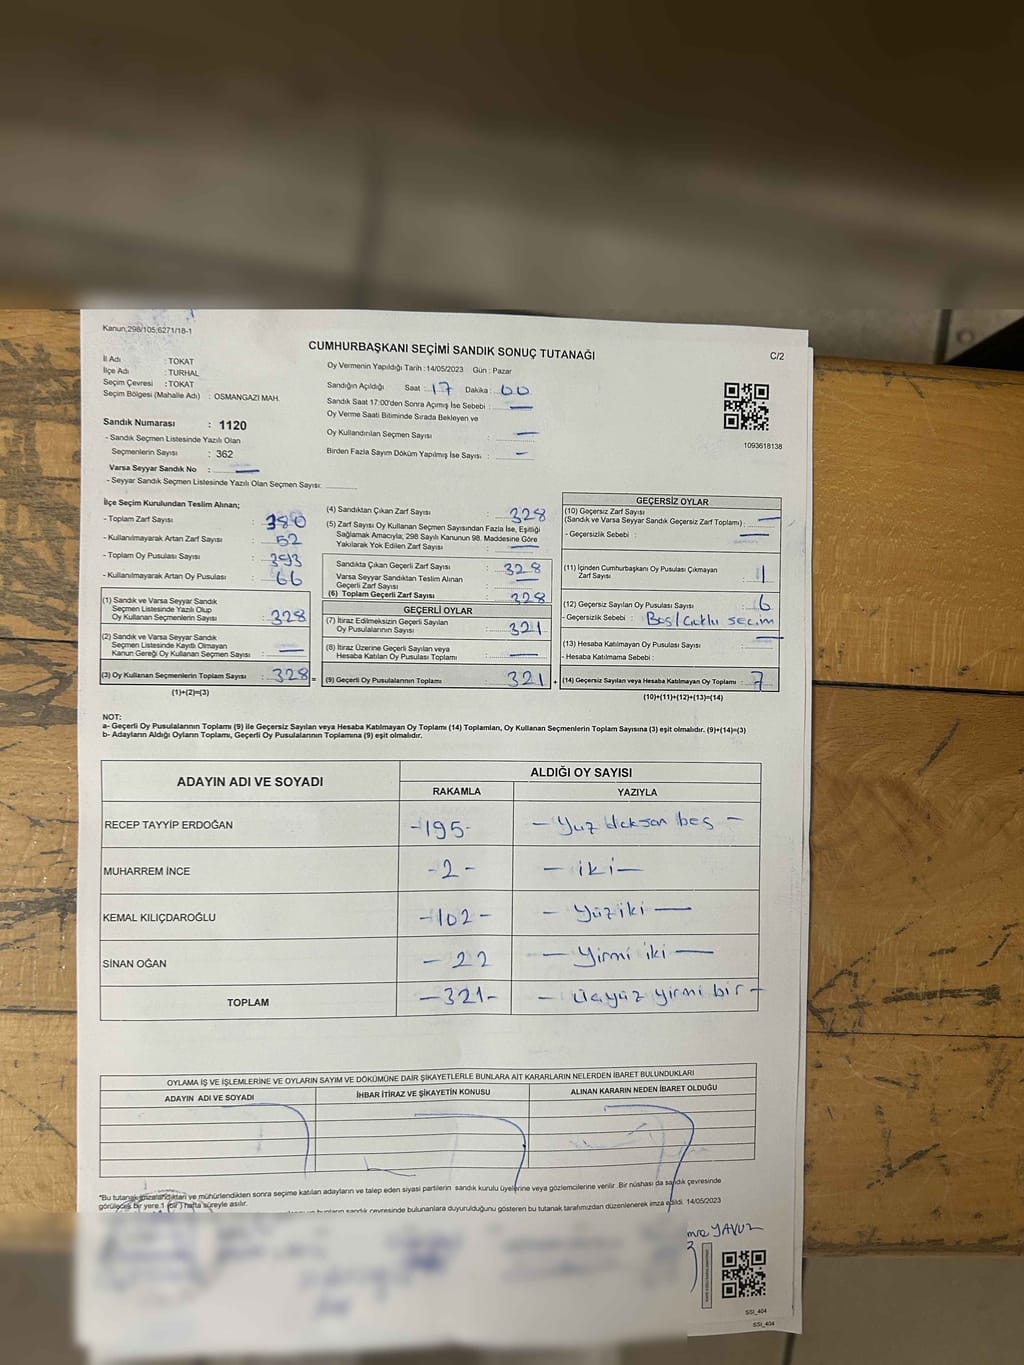 Kanun;298/105,6271/18-1
CUMHURBAŞKANI SEÇİMİ SANDIK SONUÇ TUTANAĞI
C/2
İl Adı : TOKAT
İlçe Adı : TURHAL
Seçim Çevresi : TOKAT
Seçim Bölgesi (Mahalle Adı) : OSMANGAZİ MAH.
Sandık Numarası : 1120
- Sandık Seçmen Listesinde Yazılı Olan
Seçmenlerin Sayısı : 362
Varsa Seyyar Sandık No : —
- Seyyar Sandık Seçmen Listesinde Yazılı Olan Seçmen Sayısı:
Oy Vermenin Yapıldığı Tarih : 14/05/2023 Gün : Pazar
Sandığın Açıldığı Saat : 17 Dakika : 00
Sandık Saat 17:00'den Sonra Açımış İse Sebebi : —
Oy Verme Saati Bitiminde Sırada Bekleyen ve
Oy Kullandırılan Seçmen Sayısı : —
Birden Fazla Sayım Döküm Yapılmış İse Sayısı : —
1093618138
İlçe Seçim Kurulundan Teslim Alınan;
- Toplam Zarf Sayısı : 380
- Kullanılmayarak Artan Zarf Sayısı : 52
- Toplam Oy Pusulası Sayısı : 393
- Kullanılmayarak Artan Oy Pusulası : 66
(1) Sandık ve Varsa Seyyar Sandık
Seçmen Listesinde Yazılı Olup
Oy Kullanan Seçmenlerin Sayısı : 328
(2) Sandık ve Varsa Seyyar Sandık
Seçmen Listesinde Kayıtlı Olmayan
Kanun Gereği Oy Kullanan Seçmen Sayısı : —
(3) Oy Kullanan Seçmenlerin Toplam Sayısı : 328 =
(1)+(2)=(3)
(4) Sandıktan Çıkan Zarf Sayısı : 328
(5) Zarf Sayısı Oy Kullanan Seçmen Sayısından Fazla İse, Eşitliği
Sağlamak Amacıyla; 298 Sayılı Kanunun 98. Maddesine Göre
Yakılarak Yok Edilen Zarf Sayısı : —
Sandıkta Çıkan Geçerli Zarf Sayısı : 328
Varsa Seyyar Sandıktan Teslim Alınan
Geçerli Zarf Sayısı : —
(6) Toplam Geçerli Zarf Sayısı : 328
GEÇERLİ OYLAR
(7) İtiraz Edilmeksizin Geçerli Sayılan
Oy Pusulalarının Sayısı : 321
(8) İtiraz Üzerine Geçerli Sayılan veya
Hesaba Katılan Oy Pusulası Toplamı : —
(9) Geçerli Oy Pusulalarının Toplamı : 321 +
GEÇERSİZ OYLAR
(10) Geçersiz Zarf Sayısı
(Sandık ve Varsa Seyyar Sandık Geçersiz Zarf Toplamı) : —
- Geçersizlik Sebebi : —
(11) İçinden Cumhurbaşkanı Oy Pusulası Çıkmayan
Zarf Sayısı : 1
(12) Geçersiz Sayılan Oy Pusulası Sayısı : 6
- Geçersizlik Sebebi : Boş/Çoklu seçim
(13) Hesaba Katılmayan Oy Pusulası Sayısı : —
- Hesaba Katılmama Sebebi :
(14) Geçersiz Sayılan veya Hesaba Katılmayan Oy Toplamı : 7
(10)+(11)+(12)+(13)=(14)
NOT:
a- Geçerli Oy Pusulalarının Toplamı (9) ile Geçersiz Sayılan veya Hesaba Katılmayan Oy Toplamı (14) Toplamları, Oy Kullanan Seçmenlerin Toplam Sayısına (3) eşit olmalıdır. (9)+(14)=(3)
b- Adayların Aldığı Oyların Toplamı, Geçerli Oy Pusulalarının Toplamına (9) eşit olmalıdır.
ADAYIN ADI VE SOYADI ALDIĞI OY SAYISI
RAKAMLA YAZIYLA
RECEP TAYYİP ERDOĞAN -195- — Yüz doksan beş —
MUHARREM İNCE -2- — iki —
KEMAL KILIÇDAROĞLU -102- — Yüziki —
SİNAN OĞAN - 22 — Yirmi iki —
TOPLAM -321- — üçyüz yirmi bir —
OYLAMA İŞ VE İŞLEMLERİNE VE OYLARIN SAYIM VE DÖKÜMÜNE DAİR ŞİKAYETLERLE BUNLARA AİT KARARLARIN NELERDEN İBARET BULUNDUKLARI
ADAYIN ADI VE SOYADI İHBAR İTİRAZ VE ŞİKAYETİN KONUSU ALINAN KARARIN NEDEN İBARET OLDUĞU
*Bu tutanak imzalandıktan ve mühürlendikten sonra seçime katılan adayların ve talep eden siyasi partilerin sandık kurulu üyelerine veya gözlemcilerine verilir .Bir nüshası da sandık çevresinde
görülecek bir yere 1 (bir) hafta süreyle asılır.
sandık çevresinde bulunanlara duyurulduğunu gösteren bu tutanak tarafımızdan düzenlenerek imza edildi. 14/05/2023
YAVUZ
SSI_404
SSI_404